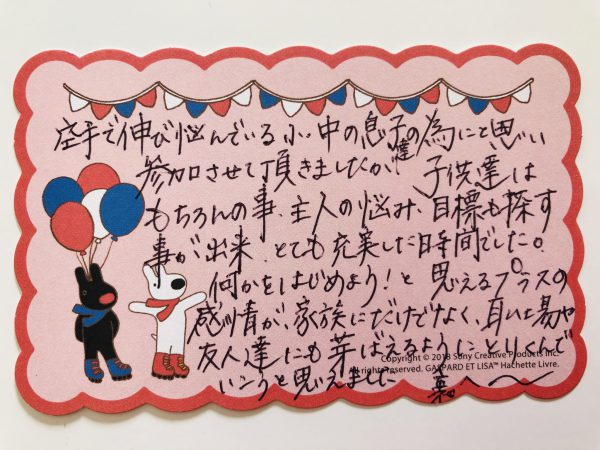 空手で伸び悩んでいる小、中の息子達の為にと思い
参加させて頂きましたが、子供達は
もちろんの事、主人の悩み、目標も探す
事が出来、とても充実した日時間でした。
何かをはじめよう!と思えるプラスの
感情が、家族にだけでなく、
友人達にも芽ばえるようにとりくんで
いこうと思えました
Copyright © 2018 Sony Creative Products Inc.
All rights reserved. GASPARD ET LISA™ Hachette Livre.